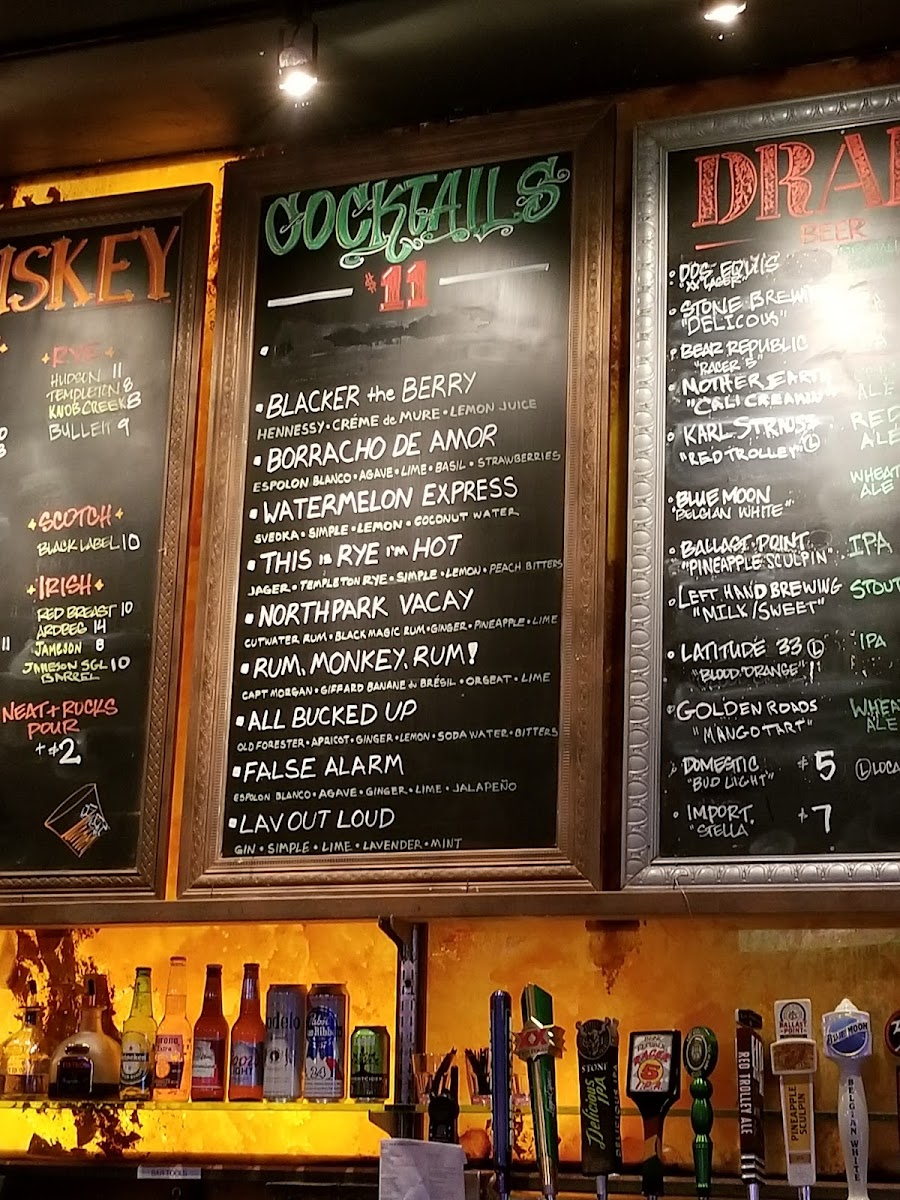 ISKEY
RYE
HUDSON 11
TEMPLETON 8
KNOB CREEK 8
BULLEIT 9
SCOTCH
BLACK LABEL 10
IRISH
RED BREAST 10
ARDBEG 14
11
JAMESON 8
JAMESON SGL 10
BARREL
NEAT + ROCKS
POUR
+ $2
COCKTAILS
$11
BLACKER the BERRY
HENNESSY • CRÉME de MURE • LEMON JUICE
BORRACHO DE AMOR
ESPOLON BLANCO • AGAVE • LIME • BASIL • STRAWBERRIES
WATERMELON EXPRESS
SVEDKA • SIMPLE • LEMON • COCONUT WATER
THIS is RYE I'M HOT
JAGER • TEMPLETON RYE • SIMPLE • LEMON • PEACH BITTERS
NORTHPARK VACAY
CUTWATER RUM • BLACK MAGIC RUM • GINGER • PINEAPPLE • LIME
RUM, MONKEY, RUM!
CAPT MORGAN • GIFFARD BANANE du BRÉSIL • ORGEAT • LIME
ALL BUCKED UP
OLD FORESTER • APRICOT • GINGER • LEMON • SODA WATER • BITTERS
FALSE ALARM
ESPOLON BLANCO • AGAVE • GINGER • LIME • JALAPEÑO
LAV OUT LOUD
GIN • SIMPLE • LIME • LAVENDER • MINT
DRA
BEER
DOS EQUIS
"XX LAGER"
STONE BREW
"DELICOUS"
BEAR REPUBLIC
"RACER 5"
MOTHER EARTH
"CALI CREAMIN" ALE
KARL STRAUSS RED
"RED TROLLEY" L ALE
BLUE MOON WHEAT
"BELGIAN WHITE" ALE
BALLAST POINT IPA
"PINEAPPLE SCULPIN"
LEFT HAND BREWING STOUT
"MILK/SWEET"
LATITUDE 33 L IPA
"BLOOD ORANGE"
GOLDEN ROADS WHEA
"MANGO TART" ALE
DOMESTIC $5 L LOCA
"BUD LIGHT"
IMPORT $7
"STELLA"
Heineken
Corona
Extra
odelo
Pabst
Blue Ribbon
XX
STONE
Delicious
IPA
RACER
5
IPA
RED TROLLEY ALE
BALLAST
POINT
PINEAPPLE
SCULPIN
BLUE MOON
BELGIAN WHITE
BAR TOOLS